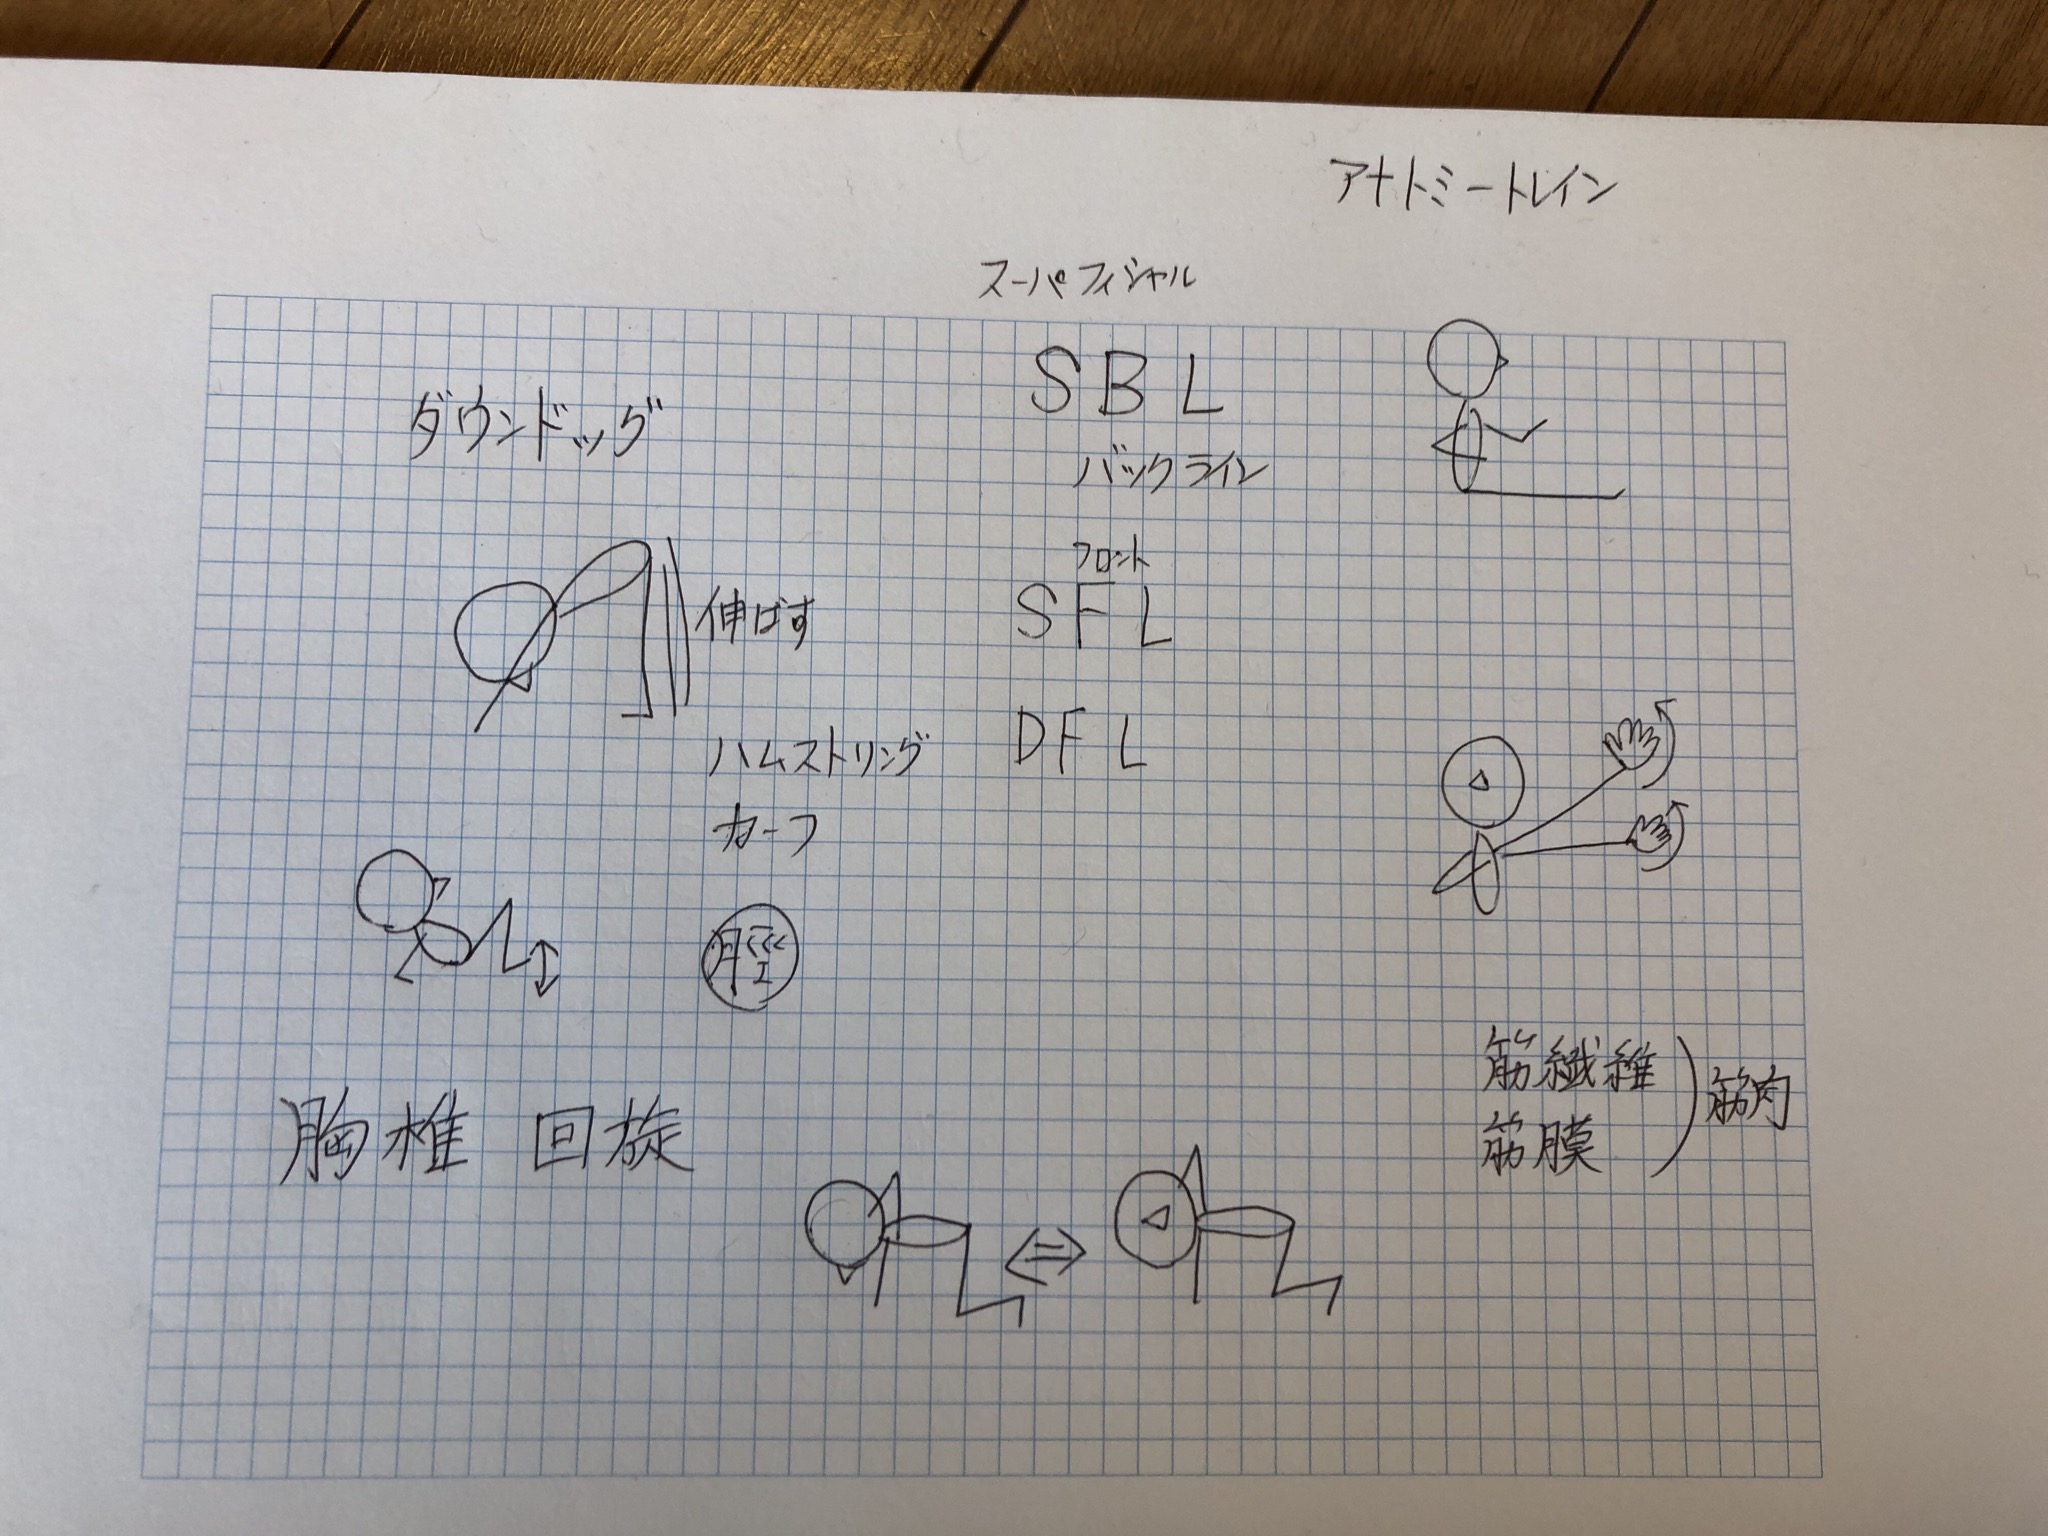 アナトミートレイン
スーパーフィシャル
SBL
バックライン
ダウンドッグ
フロント
SFL
伸ばす
DFL
ハムストリング
カーフ
脛
筋繊維
筋膜
筋肉
胸椎 回旋